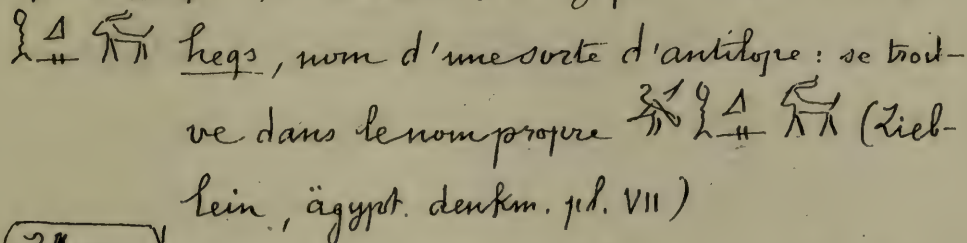 𓎛𓈎𓊃𓃶 heqs, nom d'une sorte d'antilope : se trou-
ve dans le nom propre 𓎛𓈎𓊃𓃶 (Lieb-
lein, ägypt. denkm. pl. VII)